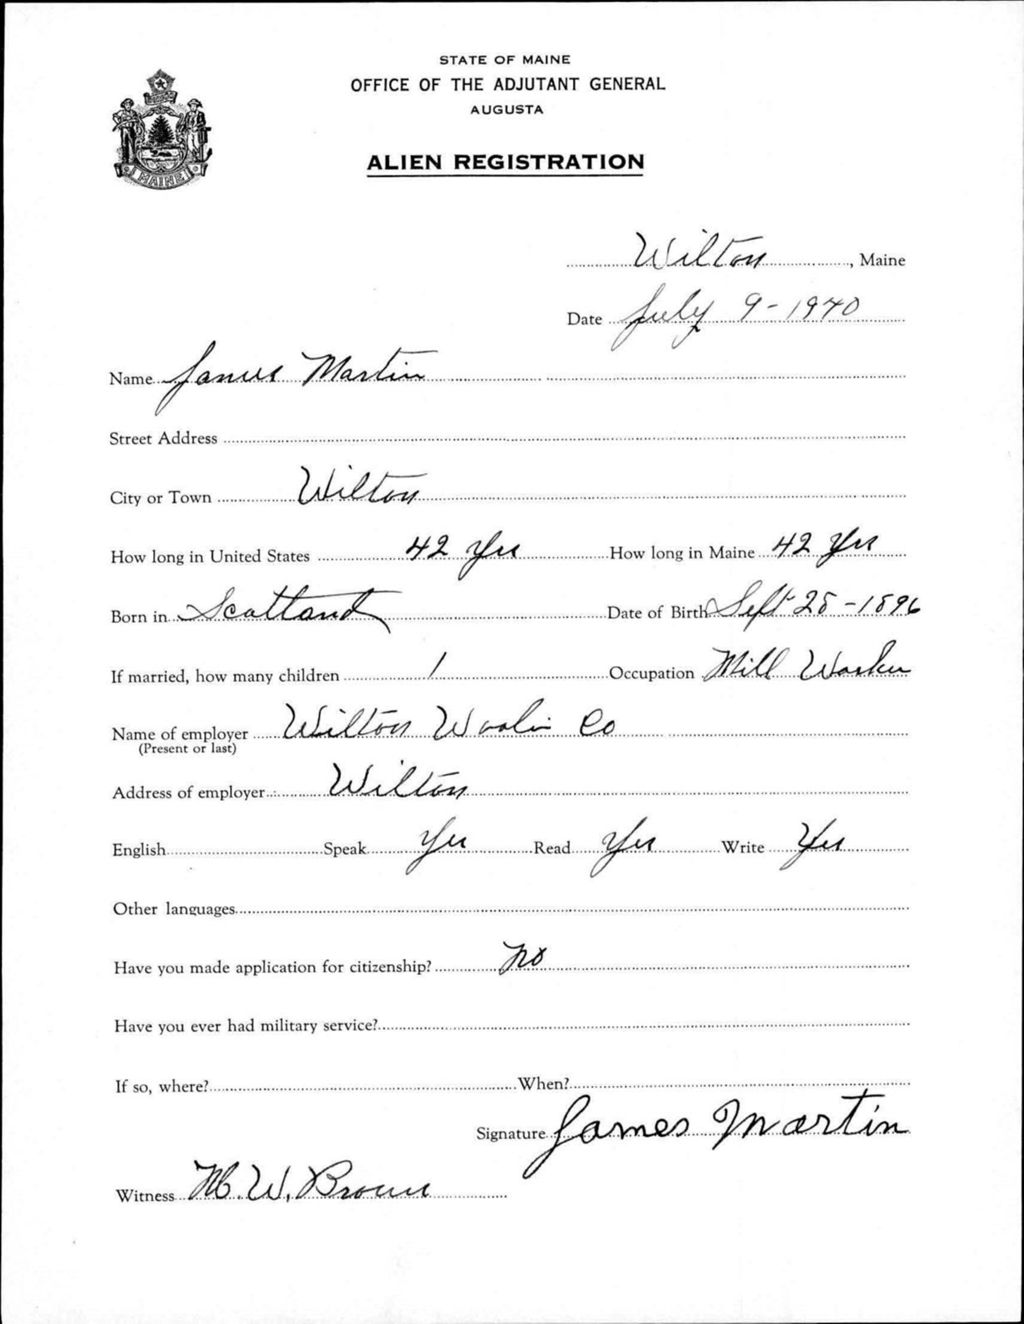 STATE OF MAINE
OFFICE OF THE ADJUTANT GENERAL
AUGUSTA
ALIEN REGISTRATION
MAINE
Wilton, Maine
Date July 9-1940
Name James Martin
Street Address
City or Town Wilton
How long in United States 42 Yrs How long in Maine 42 Yrs
Born in Scotland Date of Birth Sept 28-1896
If married, how many children 1 Occupation Mill Worker
Name of employer Wilton Woolen Co
(Present or last)
Address of employer Wilton
English Speak Yes Read Yes Write Yes
Other languages
Have you made application for citizenship? No
Have you ever had military service?
If so, where? When?
Signature James Martin
Witness W. Brown